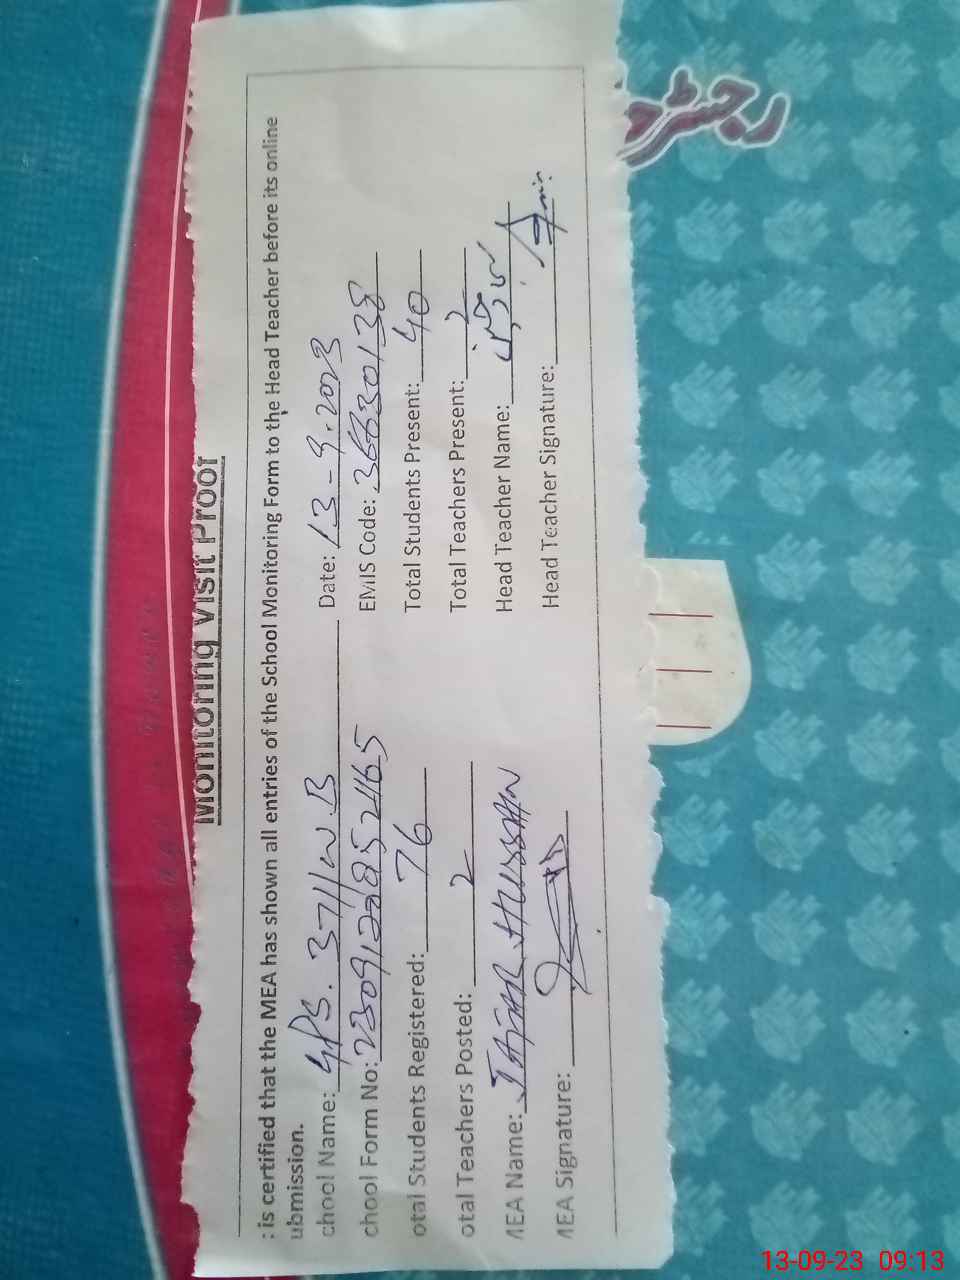 Monitoring Visit Proof
: is certified that the MEA has shown all entries of the School Monitoring Form to the Head Teacher before its online
ubmission.
chool Name: GPS. 371/W.B Date: 13-9.2023
chool Form No: EMIS Code: 36630138
otal Students Registered: 76 Total Students Present: 40
otal Teachers Posted: 2 Total Teachers Present: 2
MEA Name: JAFAR HUSSAIN Head Teacher Name:
MEA Signature: Head Teacher Signature:
رجسٹر
13-09-23 09:13